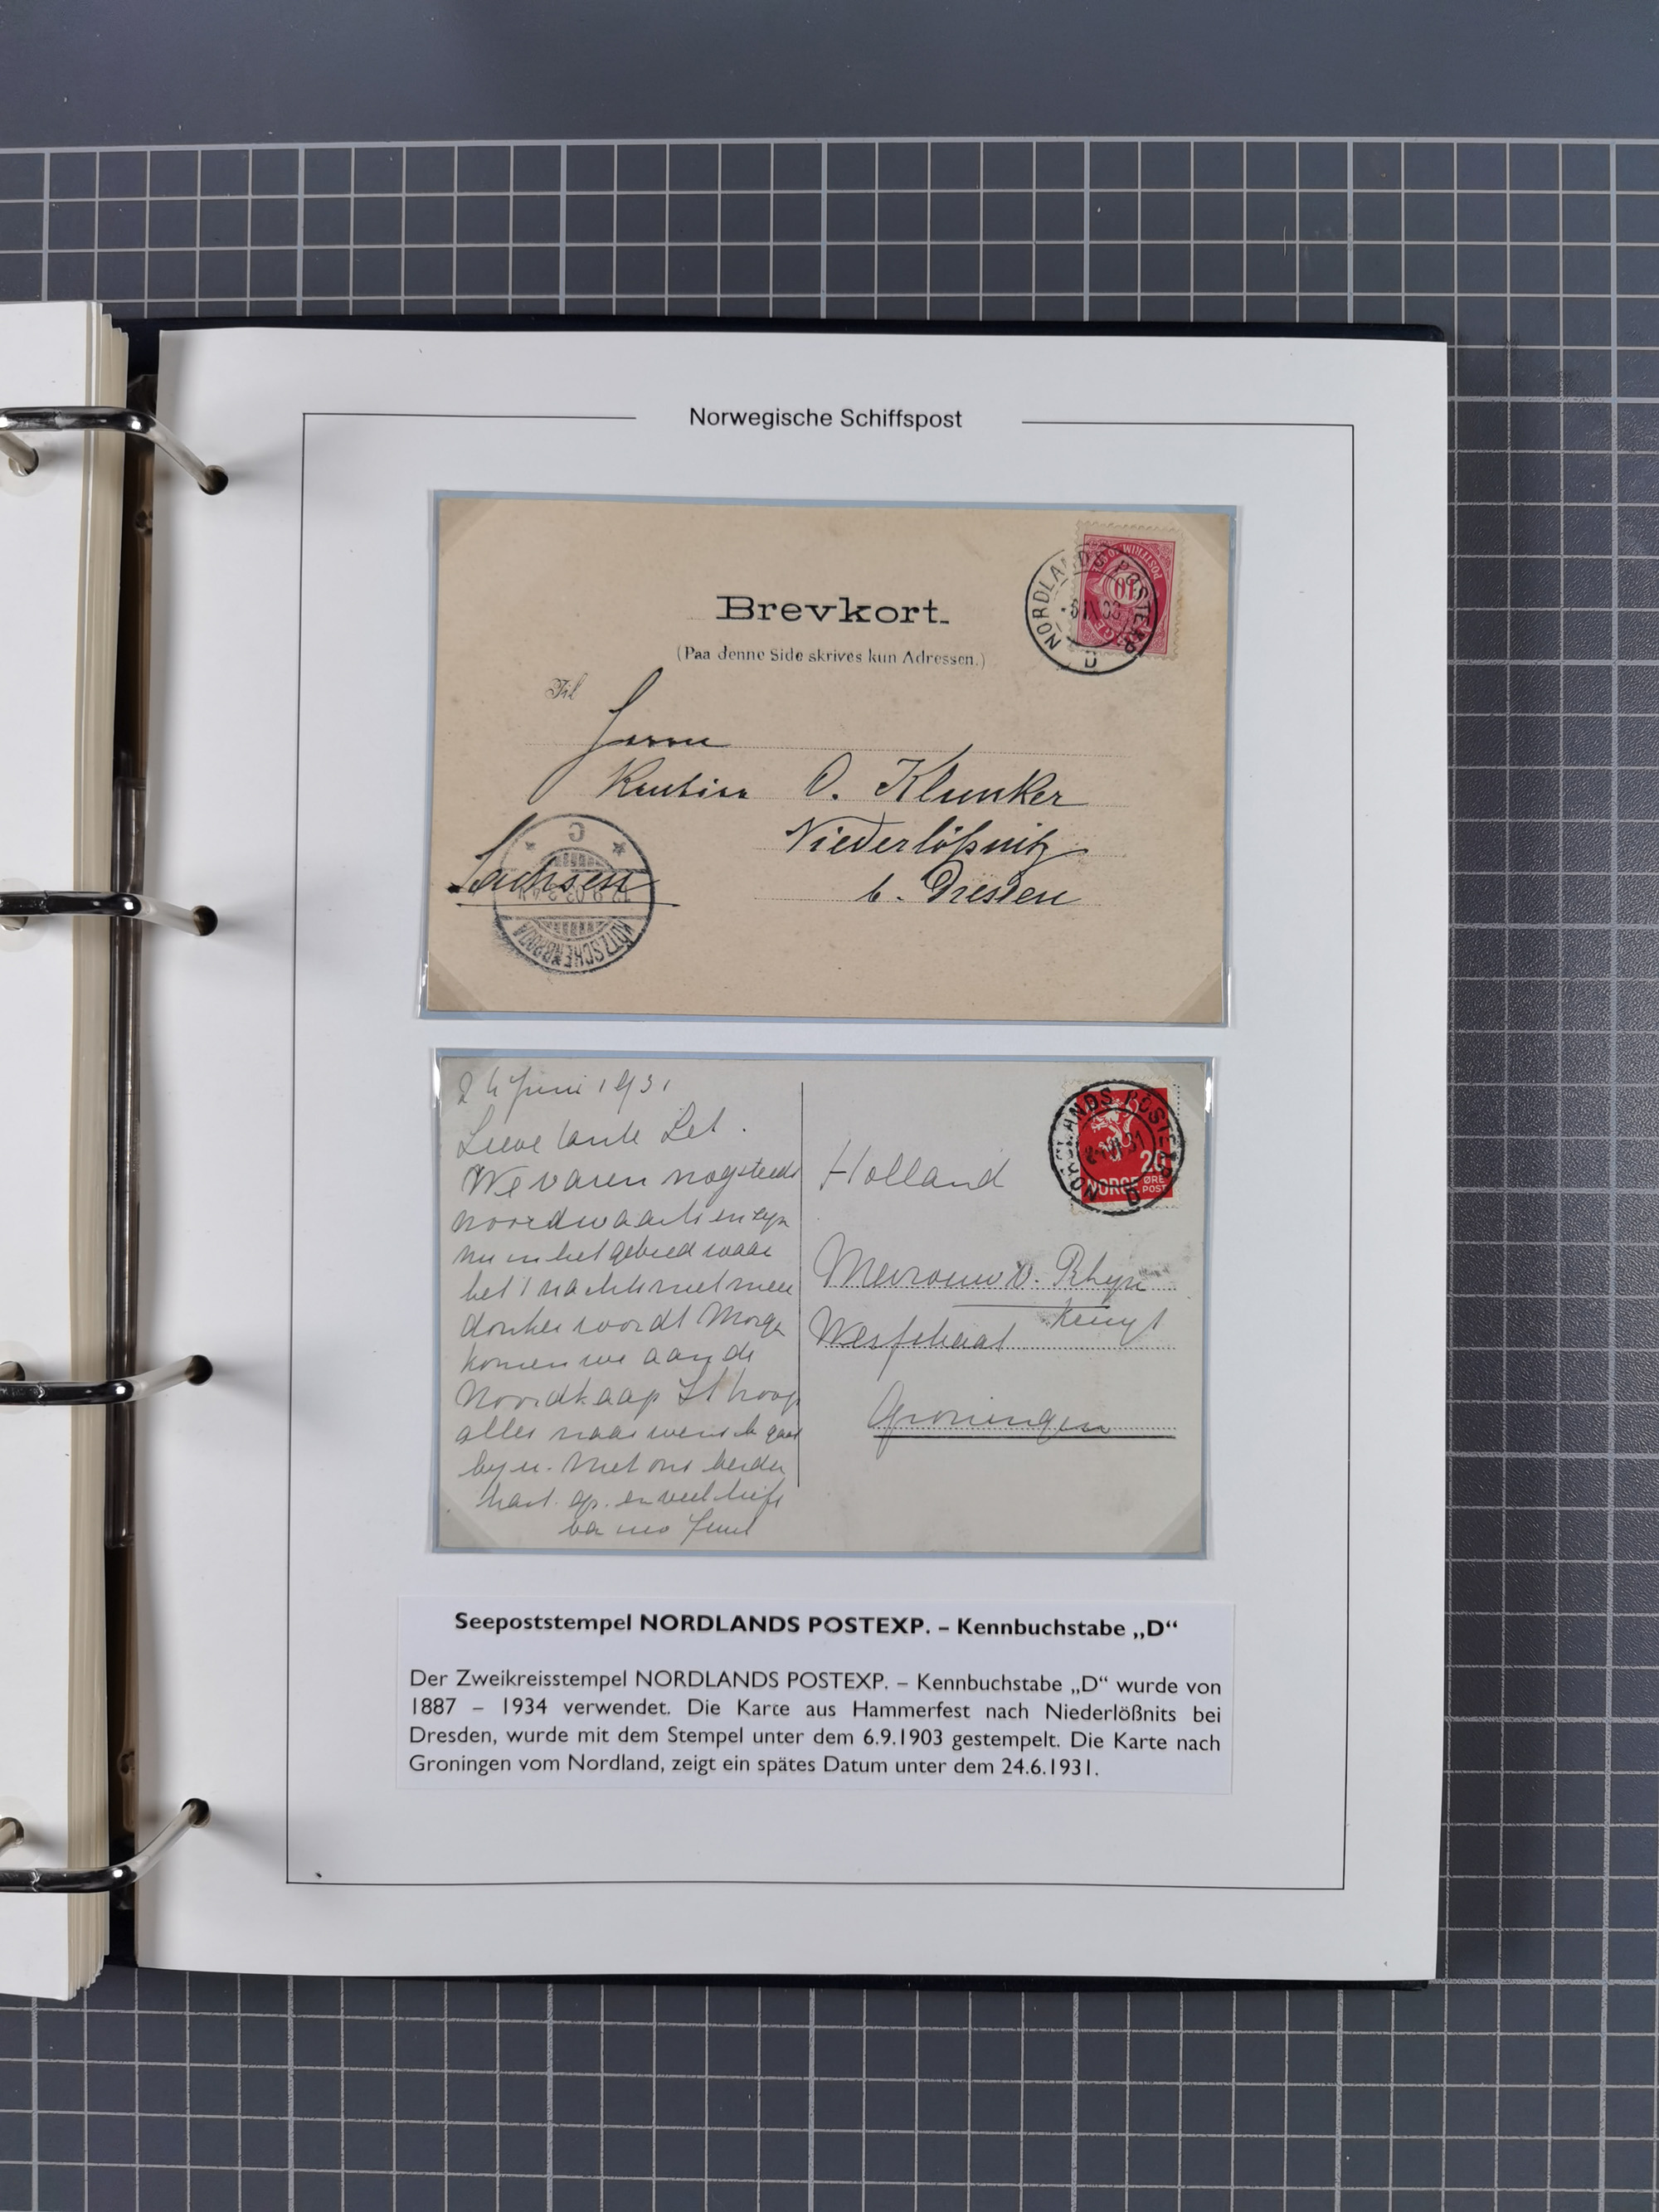 Norwegische Schiffspost
NORDLANDS POSTEXP.
D
10
Brevkort.
(Paa denne Side skrives kun Adressen.)
Til
Herrn
Rentier O. Klunker
Niederlößnitz
b. Dresden
Sachsen
C
KÖTZSCHENBRODA
24 Juni 1931
Lieve tante Bet.
We varen nog steeds
noordwaarts en zijn
nu in het gebied waar
het 's nachts niet meer
donker wordt Morgen
komen we aan de
Noordkaap Ik hoop
alles naar wensch gaat
bij u. Met ons beiden
hart. gr. en veel liefs
van uw
NORDLANDS POSTEXP.
24 VI 31
D
20
NORGE ØRE
POST
Holland
Mevrouw v. Rhyn
Groningen
Seepoststempel NORDLANDS POSTEXP. – Kennbuchstabe „D“
Der Zweikreisstempel NORDLANDS POSTEXP. – Kennbuchstabe „D“ wurde von
1887 – 1934 verwendet. Die Karte aus Hammerfest nach Niederlößnits bei
Dresden, wurde mit dem Stempel unter dem 6.9.1903 gestempelt. Die Karte nach
Groningen vom Nordland, zeigt ein spätes Datum unter dem 24.6.1931.